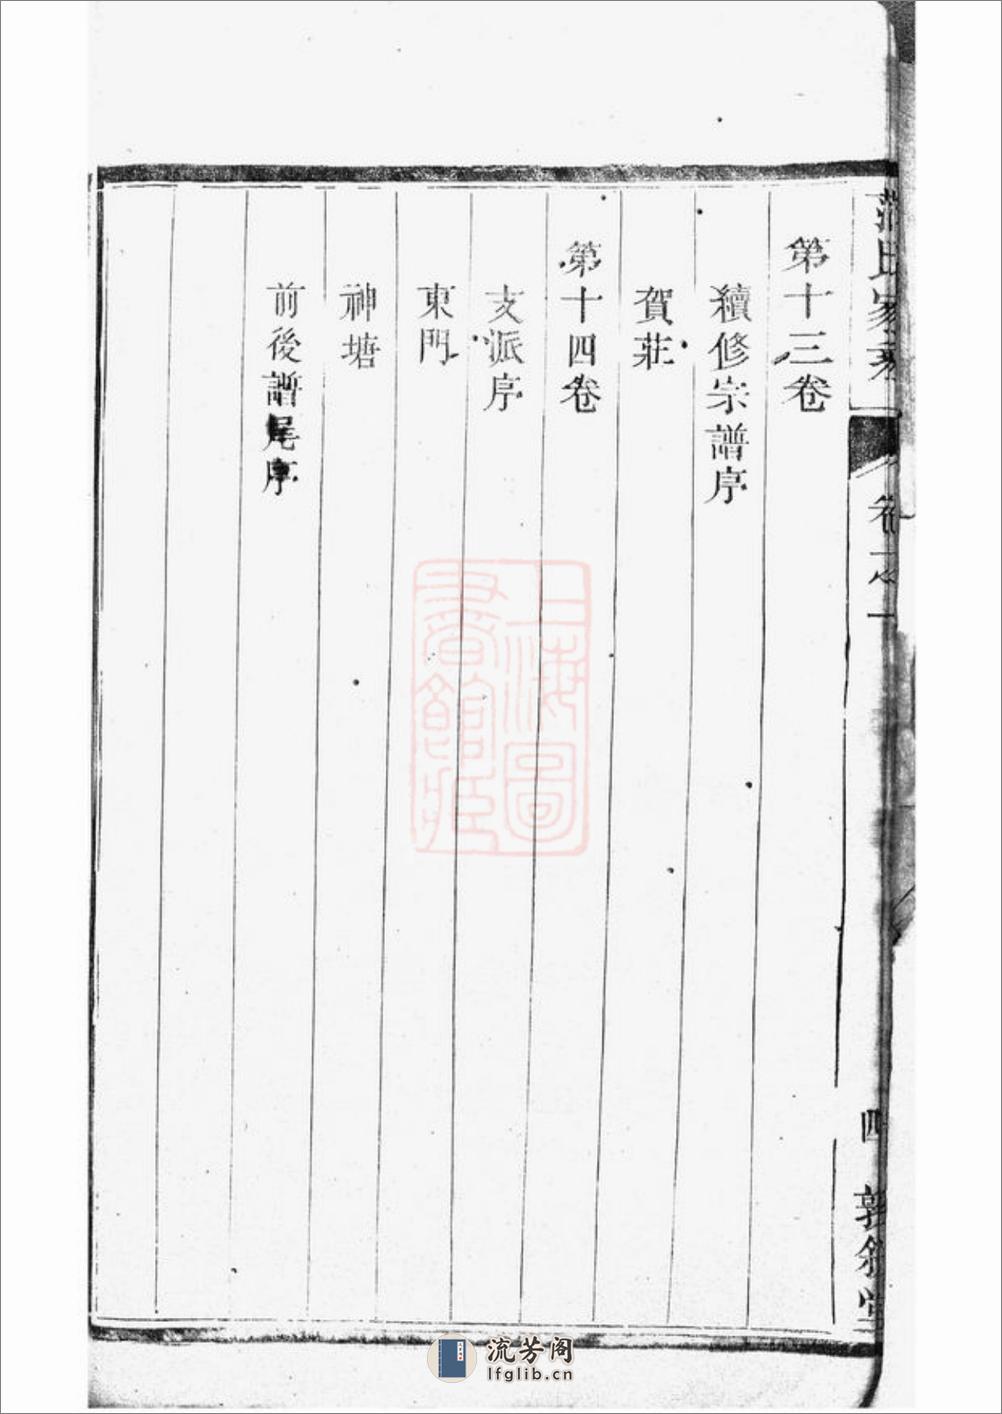 第十三卷
續修宗譜序
賀莊
第十四卷
支派序
東門
神塘
前後譜尾序
氏家乘
卷之一
四
敦叙堂
上海圖書館藏
流芳阁
lfglib.cn